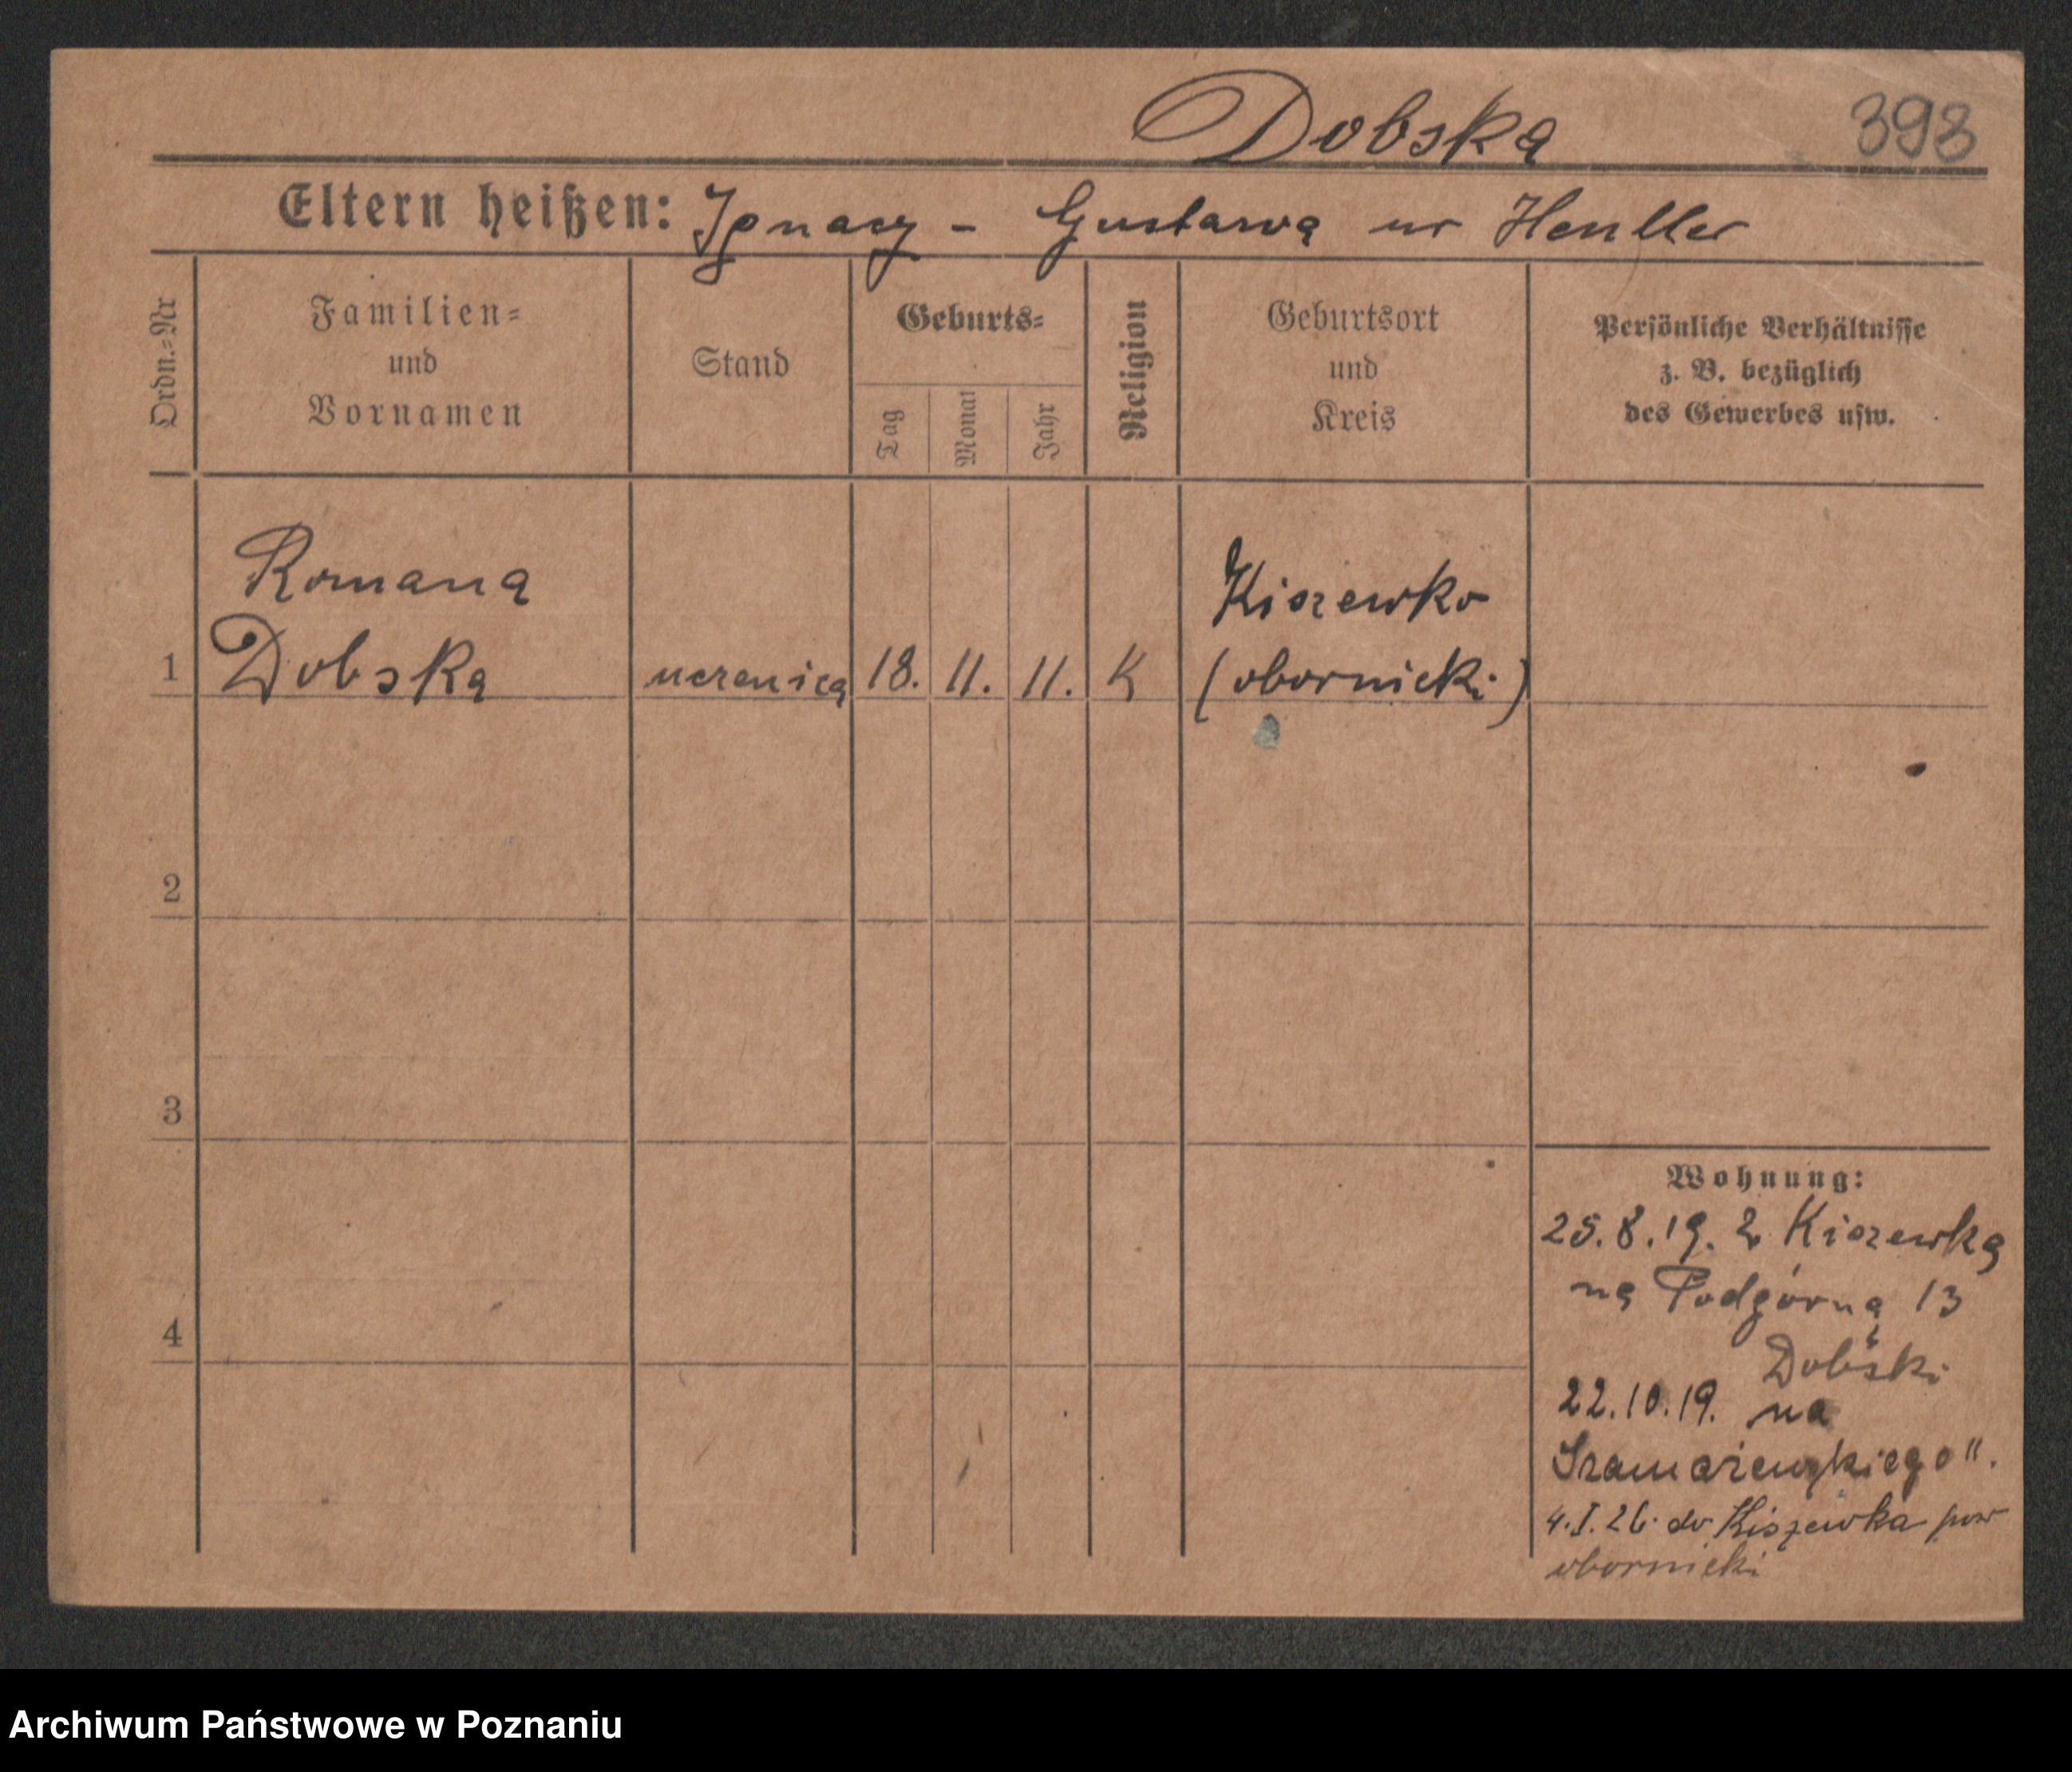 Dobska 393
Eltern heißen: Ignacy - Gustawa ur Hentler
Ordn.-Nr
Familien=
und
Vornamen
Stand
Geburts=
Tag
Monat
Jahr
Religion
Geburtsort
und
Kreis
Persönliche Verhältnisse
z. B. bezüglich
des Gewerbes usw.
Romana Kiszewko
1 Dobska uczenica 18. 11. 11. K (obornicki)
2
3
4
Wohnung:
25.8.19. z Kiszewka
na Podgórna 13
Dobski
22.10.19. na
Szamarzewskiego 11.
4.I.26. do Kiszewka pow
obornicki
Archiwum Państwowe w Poznaniu